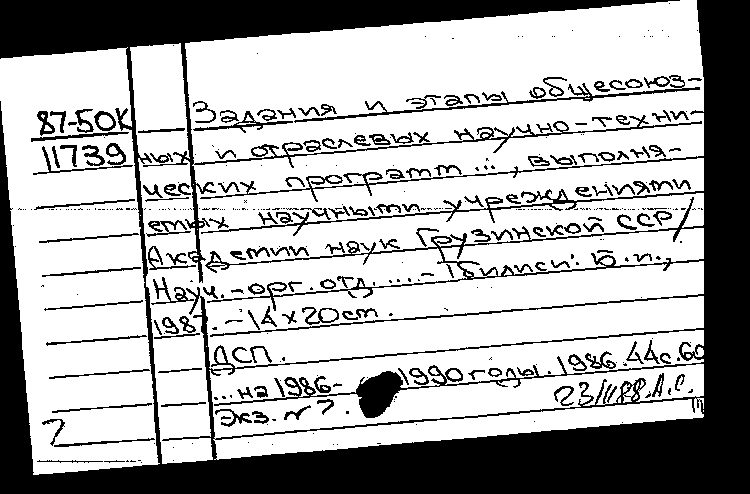 87-50К
11739
Задания и этапы общесоюз-
ных и отраслевых научно-техни-
ческих программ ..., выполня-
емых научными учреждениями
Академии наук Грузинской ССР /
Науч.-орг. отд. ... . - Тбилиси: Б.и.,
1987. - 14 х 20 см.
ДСП.
... на 1986-1990 годы. 1986. 44с. 60
экз. №7.
23/II88. А.С.